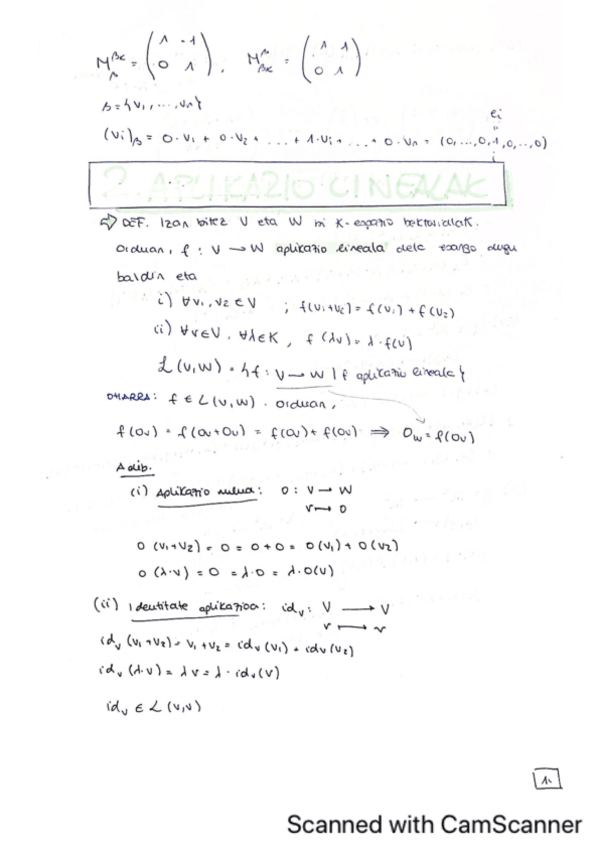 M_β^βc = (1 -1; 0 1), M_βc^β = (1 1; 0 1)
β = {v1, ..., vn}
ei
"
(vi)β = 0·v1 + 0·v2 + ... + 1·vi + ... + 0·vn = (0,...,0,1,0,..,0)
2. APLIKAZIO LINEALAK
⇒ DEF. Izan bitez V eta W bi K-espazio bektorialak.
Orduan, f : V → W aplikazio lineala dela esango dugu
baldin eta
i) ∀v1, v2 ∈ V ; f(v1+v2) = f(v1) + f(v2)
ii) ∀v∈V, ∀λ∈K, f(λv) = λ·f(v)
L(V,W) = {f : V → W | f aplikazio lineala}
OHARRA: f ∈ L(V,W). Orduan,
f(0v) = f(0v+0v) = f(0v) + f(0v) ⇒ 0w = f(0v)
Adib.
(i) Aplikazio nulua: 0 : V → W
v ↦ 0
0 (v1+v2) = 0 = 0+0 = 0(v1) + 0(v2)
0 (λ·v) = 0 = λ·0 = λ·0(v)
(ii) Identitate aplikazioa: idv : V → V
v ↦ v
idv (v1+v2) = v1+v2 = idv (v1) + idv (v2)
idv (λ·v) = λv = λ·idv(v)
idv ∈ L(V,V)
1.
Scanned with CamScanner